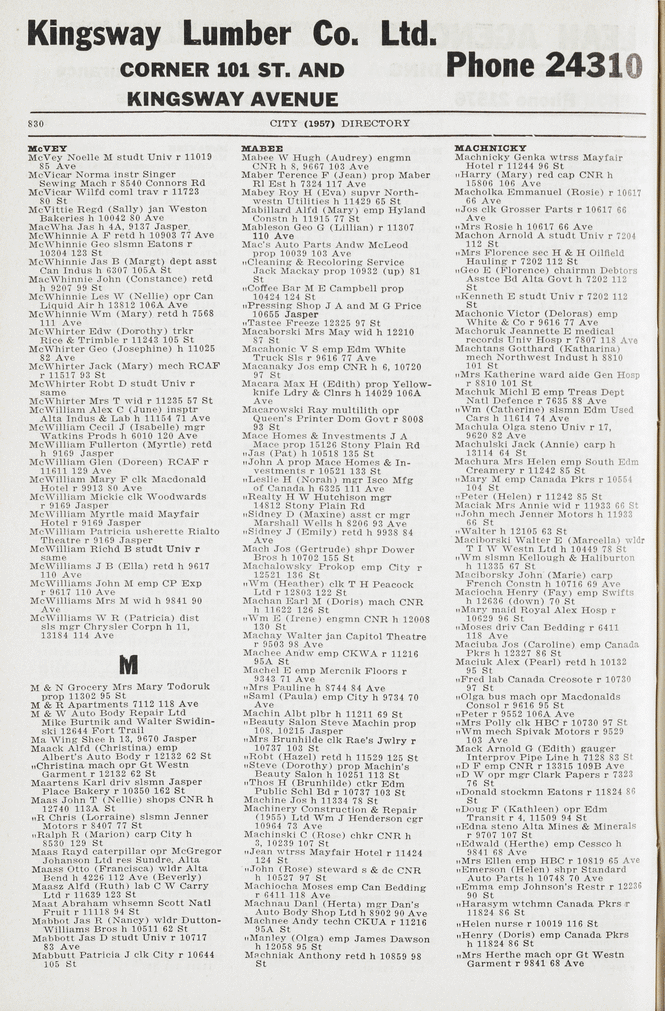 Kingsway Lumber Co. Ltd.
CORNER 101 ST. AND
KINGSWAY AVENUE
Phone 24310
830
CITY (1957) DIRECTORY
McVEY
McVey Noelle M studt Univ r 11019
85 Ave
McVicar Norma instr Singer
Sewing Mach r 8540 Connors Rd
McVicar Wilfd coml trav r 11723
80 St
McVittie Regd (Sally) jan Weston
Bakeries h 10042 80 Ave
MacWha Jas h 4A, 9137 Jasper
McWhinnie A F retd h 10903 77 Ave
McWhinnie Geo slsmn Eatons r
10304 123 St
McWhinnie Jas B (Margt) dept asst
Can Indus h 6307 105A St
MacWhinnie John (Constance) retd
h 9207 99 St
McWhinnie Les W (Nellie) opr Can
Liquid Air h 13812 106A Ave
McWhinnie Wm (Mary) retd h 7568
111 Ave
McWhirter Edw (Dorothy) trkr
Rice & Trimble r 11243 105 St
McWhirter Geo (Josephine) h 11025
82 Ave
McWhirter Jack (Mary) mech RCAF
r 11517 93 St
McWhirter Robt D studt Univ r
same
McWhirter Mrs T wid r 11235 57 St
McWilliam Alex C (June) insptr
Alta Indus & Lab h 11154 71 Ave
McWilliam Cecil J (Isabelle) mgr
Watkins Prods h 6010 120 Ave
McWilliam Fullerton (Myrtle) retd
h 9169 Jasper
McWilliam Glen (Doreen) RCAF r
11611 129 Ave
McWilliam Mary F clk Macdonald
Hotel r 9913 80 Ave
McWilliam Mickie clk Woodwards
r 9169 Jasper
McWilliam Myrtle maid Mayfair
Hotel r 9169 Jasper
McWilliam Patricia usherette Rialto
Theatre r 9169 Jasper
McWilliam Richd B studt Univ r
same
McWilliams J B (Ella) retd h 9617
110 Ave
McWilliams John M emp CP Exp
r 9617 110 Ave
McWilliams Mrs M wid h 9841 90
Ave
McWilliams W R (Patricia) dist
sls mgr Chrysler Corpn h 11,
13184 114 Ave
M
M & N Grocery Mrs Mary Todoruk
prop 11302 95 St
M & R Apartments 7112 118 Ave
M & W Auto Body Repair Ltd
Mike Burtnik and Walter Swidin-
ski 12644 Fort Trail
Ma Wing Shee h 13, 9670 Jasper
Maack Alfd (Christina) emp
Albert's Auto Body r 12132 62 St
„Christina mach opr Gt Westn
Garment r 12132 62 St
Maartens Karl driv slsmn Jasper
Place Bakery r 10350 162 St
Maas John T (Nellie) shops CNR h
12740 113A St
„R Chris (Lorraine) slsmn Jenner
Motors r 8407 77 St
„Ralph R (Marion) carp City h
8530 129 St
Maas Rayd caterpillar opr McGregor
Johanson Ltd res Sundre, Alta
Maass Otto (Francisca) wldr Alta
Bend h 4226 112 Ave (Beverly)
Maasz Alfd (Ruth) lab C W Carry
Ltd r 11639 123 St
Maat Abraham whsemn Scott Natl
Fruit r 11118 94 St
Mabbot Jas R (Nancy) wldr Dutton-
Williams Bros h 10511 62 St
Mabbott Jas D studt Univ r 10717
83 Ave
Mabbutt Patricia J clk City r 10644
105 St
MABEE
Mabee W Hugh (Audrey) engmn
CNR h 8, 9667 103 Ave
Maber Terence F (Jean) prop Maber
Rl Est h 7324 117 Ave
Mabey Roy H (Eva) supvr North-
westn Utilities h 11429 65 St
Mabillard Alfd (Mary) emp Hyland
Constn h 11915 77 St
Mableson Geo G (Lillian) r 11307
110 Ave
Mac's Auto Parts Andw McLeod
prop 10039 103 Ave
„Cleaning & Recoloring Service
Jack Mackay prop 10932 (up) 81
St
„Coffee Bar M E Campbell prop
10424 124 St
„Pressing Shop J A and M G Price
10655 Jasper
„Tastee Freeze 12325 97 St
Macaborski Mrs May wid h 12210
87 St
Macahonic V S emp Edm White
Truck Sls r 9616 77 Ave
Macanaky Jos emp CNR h 6, 10720
97 St
Macara Max H (Edith) prop Yellow-
knife Ldry & Clnrs h 14029 106A
Ave
Macarowski Ray multilith opr
Queen's Printer Dom Govt r 8008
93 St
Mace Homes & Investments J A
Mace prop 15126 Stony Plain Rd
„Jas (Pat) h 10518 135 St
„John A prop Mace Homes & In-
vestments r 10521 133 St
„Leslie H (Norah) mgr Isco Mfg
of Canada h 6325 111 Ave
„Realty H W Hutchison mgr
14812 Stony Plain Rd
„Sidney D (Maxine) asst cr mgr
Marshall Wells h 8206 93 Ave
„Sidney J (Emily) retd h 9938 84
Ave
Mach Jos (Gertrude) shpr Dower
Bros h 10702 155 St
Machalowsky Prokop emp City r
12521 136 St
„Wm (Heather) clk T H Peacock
Ltd r 12803 122 St
Machan Earl M (Doris) mach CNR
h 11622 126 St
„Wm E (Irene) engmn CNR h 12008
130 St
Machay Walter jan Capitol Theatre
r 9503 98 Ave
Machee Andw emp CKWA r 11216
95A St
Machel E emp Mercnik Floors r
9343 71 Ave
„Mrs Pauline h 8744 84 Ave
„Saml (Paula) emp City h 9734 70
Ave
Machin Albt plbr h 11211 69 St
„Beauty Salon Steve Machin prop
108, 10215 Jasper
„Mrs Brunhilde clk Rae's Jwlry r
10737 103 St
„Robt (Hazel) retd h 11529 125 St
„Steve (Dorothy) prop Machin's
Beauty Salon h 10251 113 St
„Thos H (Brunhilde) ctkr Edm
Public Schl Bd r 10737 103 St
Machine Jos h 11334 78 St
Machinery Construction & Repair
(1955) Ltd Wm J Henderson cgr
10964 73 Ave
Machinski C (Rose) chkr CNR h
3, 10239 107 St
„Jean wtrss Mayfair Hotel r 11424
124 St
„John (Rose) steward s & dc CNR
h 10527 97 St
Machiocha Moses emp Can Bedding
r 6411 118 Ave
Machnau Danl (Herta) mgr Dan's
Auto Body Shop Ltd h 8902 90 Ave
Machnee Andy techn CKUA r 11216
95A St
„Manley (Olga) emp James Dawson
h 12058 95 St
Machniak Anthony retd h 10859 98
St
MACHNICKY
Machnicky Genka wtrss Mayfair
Hotel r 11244 96 St
„Harry (Mary) red cap CNR h
15806 106 Ave
Macholka Emmanuel (Rosie) r 10617
66 Ave
„Jos clk Grosser Parts r 10617 66
Ave
„Mrs Rosie h 10617 66 Ave
Machon Arnold A studt Univ r 7204
112 St
„Mrs Florence sec H & H Oilfield
Hauling r 7202 112 St
„Geo E (Florence) chairmn Debtors
Asstce Bd Alta Govt h 7202 112
St
„Kenneth E studt Univ r 7202 112
St
Machonic Victor (Deloras) emp
White & Co r 9616 77 Ave
Machoruk Jeannette E medical
records Univ Hosp r 7807 118 Ave
Machtans Gotthard (Katharina)
mech Northwest Indust h 8810
101 St
„Mrs Katherine ward aide Gen Hosp
r 8810 101 St
Machuk Michl E emp Treas Dept
Natl Defence r 7635 88 Ave
„Wm (Catherine) slsmn Edm Used
Cars h 11614 74 Ave
Machula Olga steno Univ r 17,
9620 82 Ave
Machulski Jack (Annie) carp h
13114 64 St
Machura Mrs Helen emp South Edm
Creamery r 11242 85 St
„Mary M emp Canada Pkrs r 10554
104 St
„Peter (Helen) r 11242 85 St
Maciak Mrs Annie wid r 11933 66 St
„John mech Jenner Motors h 11933
66 St
„Walter h 12105 63 St
Maciborski Walter E (Marcella) wldr
T I W Westn Ltd h 10449 78 St
„Wm slsmn Kellough & Haliburton
h 11335 67 St
Maciborsky John (Marie) carp
French Constn h 10716 69 Ave
Maciocha Henry (Fay) emp Swifts
h 12636 (down) 70 St
„Mary maid Royal Alex Hosp r
10629 96 St
„Moses driv Can Bedding r 6411
118 Ave
Maciuba Jos (Caroline) emp Canada
Pkrs h 12327 86 St
Maciuk Alex (Pearl) retd h 10132
95 St
„Fred lab Canada Creosote r 10730
97 St
„Olga bus mach opr Macdonalds
Consol r 9616 95 St
„Peter r 9552 106A Ave
„Mrs Polly clk HBC r 10730 97 St
„Wm mech Spivak Motors r 9529
103 Ave
Mack Arnold G (Edith) gauger
Interprov Pipe Line h 7128 83 St
„D F emp CNR r 13315 109B Ave
„D W opr mgr Clark Papers r 7323
76 St
„Donald stockmn Eatons r 11824 86
St
„Doug F (Kathleen) opr Edm
Transit r 4, 11509 94 St
„Edna steno Alta Mines & Minerals
r 9707 107 St
„Edwald (Herthe) emp Cessco h
9841 68 Ave
„Mrs Ellen emp HBC r 10819 65 Ave
„Emerson (Helen) shpr Standard
Auto Parts h 10748 70 Ave
„Emma emp Johnson's Restr r 12236
90 St
„Harasym wtchmn Canada Pkrs r
11824 86 St
„Helen nurse r 10019 116 St
„Henry (Doris) emp Canada Pkrs
h 11824 86 St
„Mrs Herthe mach opr Gt Westn
Garment r 9841 68 Ave